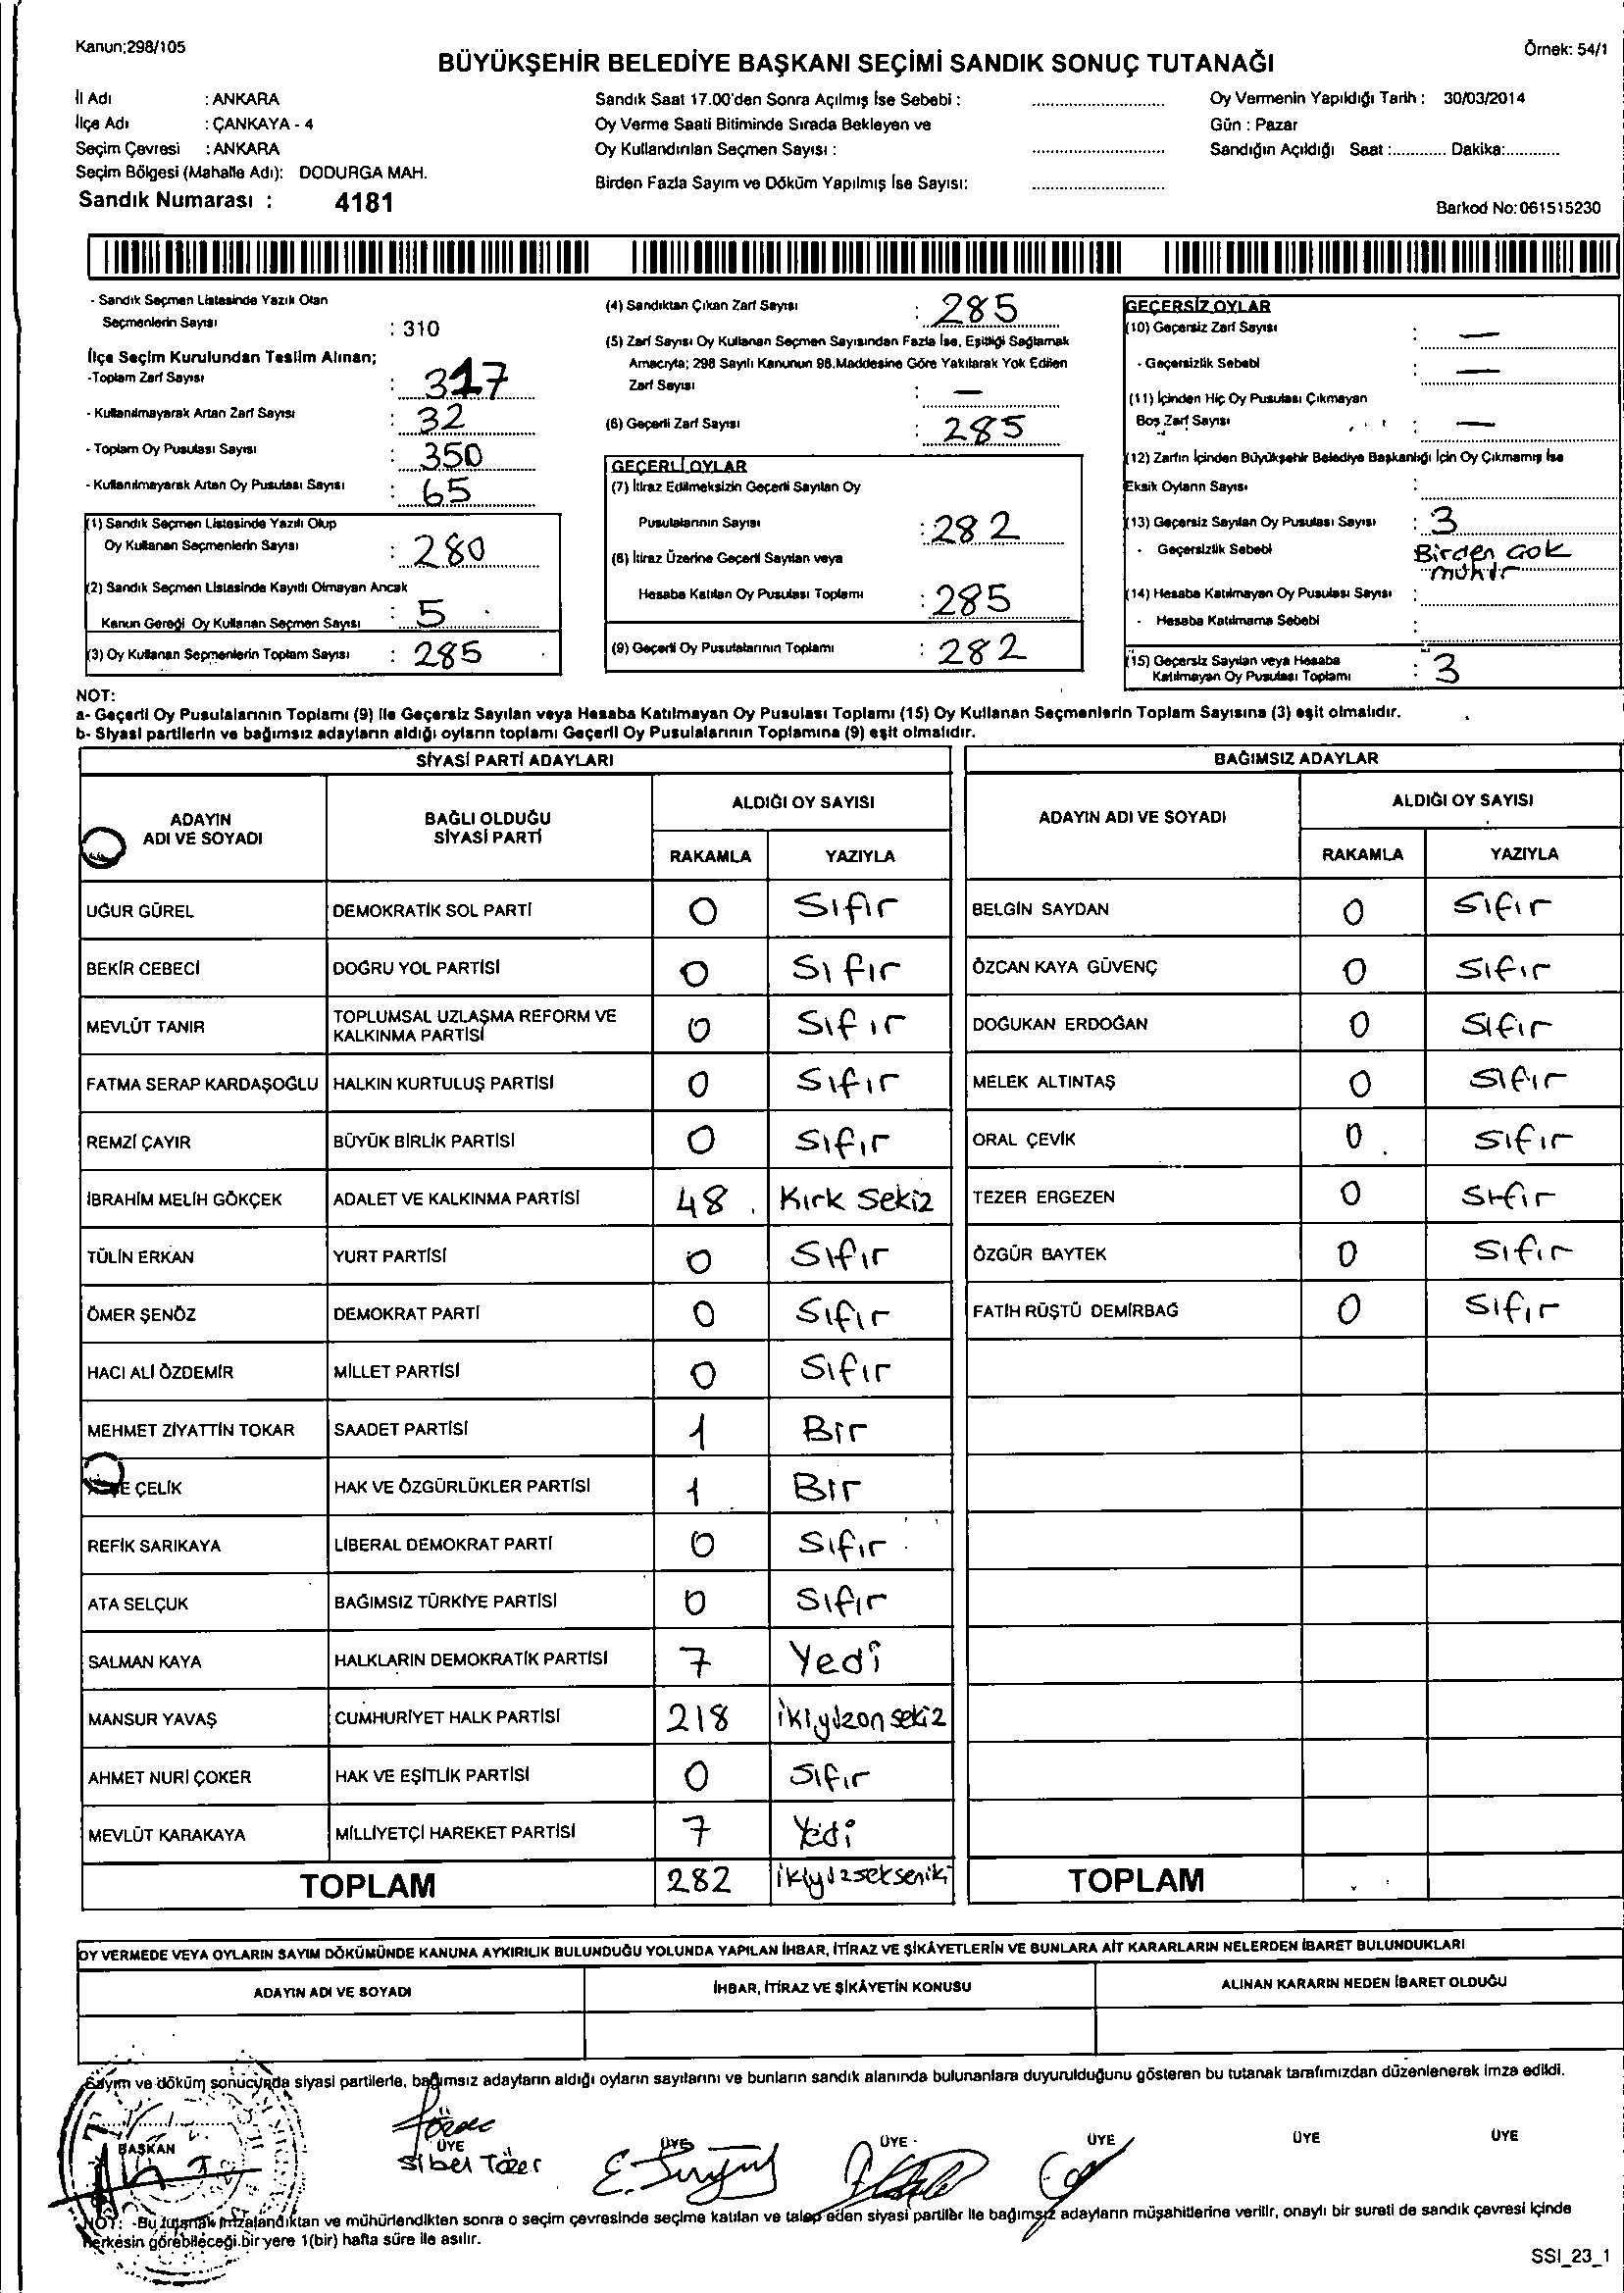 Kanun:298/105
Örnek: 54/1
BÜYÜKŞEHİR BELEDİYE BAŞKANI SEÇİMİ SANDIK SONUÇ TUTANAĞI
İl Adı : ANKARA
İlçe Adı : ÇANKAYA - 4
Seçim Çevresi : ANKARA
Seçim Bölgesi (Mahalle Adı): DODURGA MAH.
Sandık Numarası : 4181
Sandık Saat 17.00'den Sonra Açılmış İse Sebebi :
Oy Verme Saati Bitiminde Sırada Bekleyen ve
Oy Kullandırılan Seçmen Sayısı :
Birden Fazla Sayım ve Döküm Yapılmış İse Sayısı:
Oy Vermenin Yapıldığı Tarih : 30/03/2014
Gün : Pazar
Sandığın Açıldığı Saat :............ Dakika:............
Barkod No:061515230
- Sandık Seçmen Listesinde Yazılı Olan
Seçmenlerin Sayısı : 310
İlçe Seçim Kurulundan Teslim Alınan;
-Toplam Zarf Sayısı : 317
- Kullanılmayarak Artan Zarf Sayısı : 32
- Toplam Oy Pusulası Sayısı : 350
- Kullanılmayarak Artan Oy Pusulası Sayısı : 65
(1) Sandık Seçmen Listesinde Yazılı Olup
Oy Kullanan Seçmenlerin Sayısı : 280
(2) Sandık Seçmen Listesinde Kayıtlı Olmayan Ancak
Kanun Gereği Oy Kullanan Seçmen Sayısı : 5
(3) Oy Kullanan Seçmenlerin Toplam Sayısı : 285
(4) Sandıktan Çıkan Zarf Sayısı : 285
(5) Zarf Sayısı Oy Kullanan Seçmen Sayısından Fazla İse, Eşitliği Sağlamak
Amacıyla; 298 Sayılı Kanunun 98.Maddesine Göre Yakılarak Yok Edilen
Zarf Sayısı : —
(6) Geçerli Zarf Sayısı : 285
GEÇERLİ OYLAR
(7) İtiraz Edilmeksizin Geçerli Sayılan Oy
Pusulalarının Sayısı : 282
(8) İtiraz Üzerine Geçerli Sayılan veya
Hesaba Katılan Oy Pusulası Toplamı : 285
(9) Geçerli Oy Pusulalarının Toplamı : 282
GEÇERSİZ OYLAR
(10) Geçersiz Zarf Sayısı : —
- Geçersizlik Sebebi : —
(11) İçinden Hiç Oy Pusulası Çıkmayan
Boş Zarf Sayısı : —
(12) Zarfın İçinden Büyükşehir Belediye Başkanlığı İçin Oy Çıkmamış İse
Eksik Oyların Sayısı :
(13) Geçersiz Sayılan Oy Pusulası Sayısı : 3
- Geçersizlik Sebebi : Birden Çok
mühür
(14) Hesaba Katılmayan Oy Pusulası Sayısı :
- Hesaba Katılmama Sebebi :
(15) Geçersiz Sayılan veya Hesaba
Katılmayan Oy Pusulası Toplamı : 3
NOT:
a- Geçerli Oy Pusulalarının Toplamı (9) ile Geçersiz Sayılan veya Hesaba Katılmayan Oy Pusulası Toplamı (15) Oy Kullanan Seçmenlerin Toplam Sayısına (3) eşit olmalıdır.
b- Siyasi partilerin ve bağımsız adayların aldığı oyların toplamı Geçerli Oy Pusulalarının Toplamına (9) eşit olmalıdır.
SİYASİ PARTİ ADAYLARI
ADAYIN
ADI VE SOYADI
BAĞLI OLDUĞU
SİYASİ PARTİ
ALDIĞI OY SAYISI
RAKAMLA YAZIYLA
UĞUR GÜREL DEMOKRATİK SOL PARTİ 0 Sıfır
BEKİR CEBECİ DOĞRU YOL PARTİSİ 0 Sıfır
MEVLÜT TANIR TOPLUMSAL UZLAŞMA REFORM VE
KALKINMA PARTİSİ 0 Sıfır
FATMA SERAP KARDAŞOĞLU HALKIN KURTULUŞ PARTİSİ 0 Sıfır
REMZİ ÇAYIR BÜYÜK BİRLİK PARTİSİ 0 Sıfır
İBRAHİM MELİH GÖKÇEK ADALET VE KALKINMA PARTİSİ 48 Kırk Sekiz
TÜLİN ERKAN YURT PARTİSİ 0 Sıfır
ÖMER ŞENÖZ DEMOKRAT PARTİ 0 Sıfır
HACI ALİ ÖZDEMİR MİLLET PARTİSİ 0 Sıfır
MEHMET ZİYATTİN TOKAR SAADET PARTİSİ 1 Bir
ÇELİK HAK VE ÖZGÜRLÜKLER PARTİSİ 1 Bir
REFİK SARIKAYA LİBERAL DEMOKRAT PARTİ 0 Sıfır
ATA SELÇUK BAĞIMSIZ TÜRKİYE PARTİSİ 0 Sıfır
SALMAN KAYA HALKLARIN DEMOKRATİK PARTİSİ 7 Yedi
MANSUR YAVAŞ CUMHURİYET HALK PARTİSİ 218 ikiyüzon sekiz
AHMET NURİ ÇOKER HAK VE EŞİTLİK PARTİSİ 0 Sıfır
MEVLÜT KARAKAYA MİLLİYETÇİ HAREKET PARTİSİ 7 Yedi
TOPLAM 282 ikiyüzsekseniki
BAĞIMSIZ ADAYLAR
ADAYIN ADI VE SOYADI
ALDIĞI OY SAYISI
RAKAMLA YAZIYLA
BELGİN SAYDAN 0 Sıfır
ÖZCAN KAYA GÜVENÇ 0 Sıfır
DOĞUKAN ERDOĞAN 0 Sıfır
MELEK ALTINTAŞ 0 Sıfır
ORAL ÇEVİK 0 Sıfır
TEZER ERGEZEN 0 Sıfır
ÖZGÜR BAYTEK 0 Sıfır
FATİH RÜŞTÜ DEMİRBAĞ 0 Sıfır
TOPLAM
OY VERMEDE VEYA OYLARIN SAYIM DÖKÜMÜNDE KANUNA AYKIRILIK BULUNDUĞU YOLUNDA YAPILAN İHBAR, İTİRAZ VE ŞİKÂYETLERİN VE BUNLARA AİT KARARLARIN NELERDEN İBARET BULUNDUKLARI
ADAYIN ADI VE SOYADI
İHBAR, İTİRAZ VE ŞİKÂYETİN KONUSU
ALINAN KARARIN NEDEN İBARET OLDUĞU
Sayım ve döküm sonucunda siyasi partilerle, bağımsız adayların aldığı oyların sayılarını ve bunların sandık alanında bulunanlara duyurulduğunu gösteren bu tutanak tarafımızdan düzenlenerek imza edildi.
BAŞKAN ÜYE ÜYE ÜYE ÜYE ÜYE ÜYE
Sibel Tözer
NOT: -Bu tutanak imzalandıktan ve mühürlendikten sonra o seçim çevresinde seçime katılan ve talep eden siyasi partiler ile bağımsız adayların müşahitlerine verilir, onaylı bir sureti de sandık çevresi içinde
herkesin görebileceği bir yere 1(bir) hafta süre ile asılır.
SSI_23_1